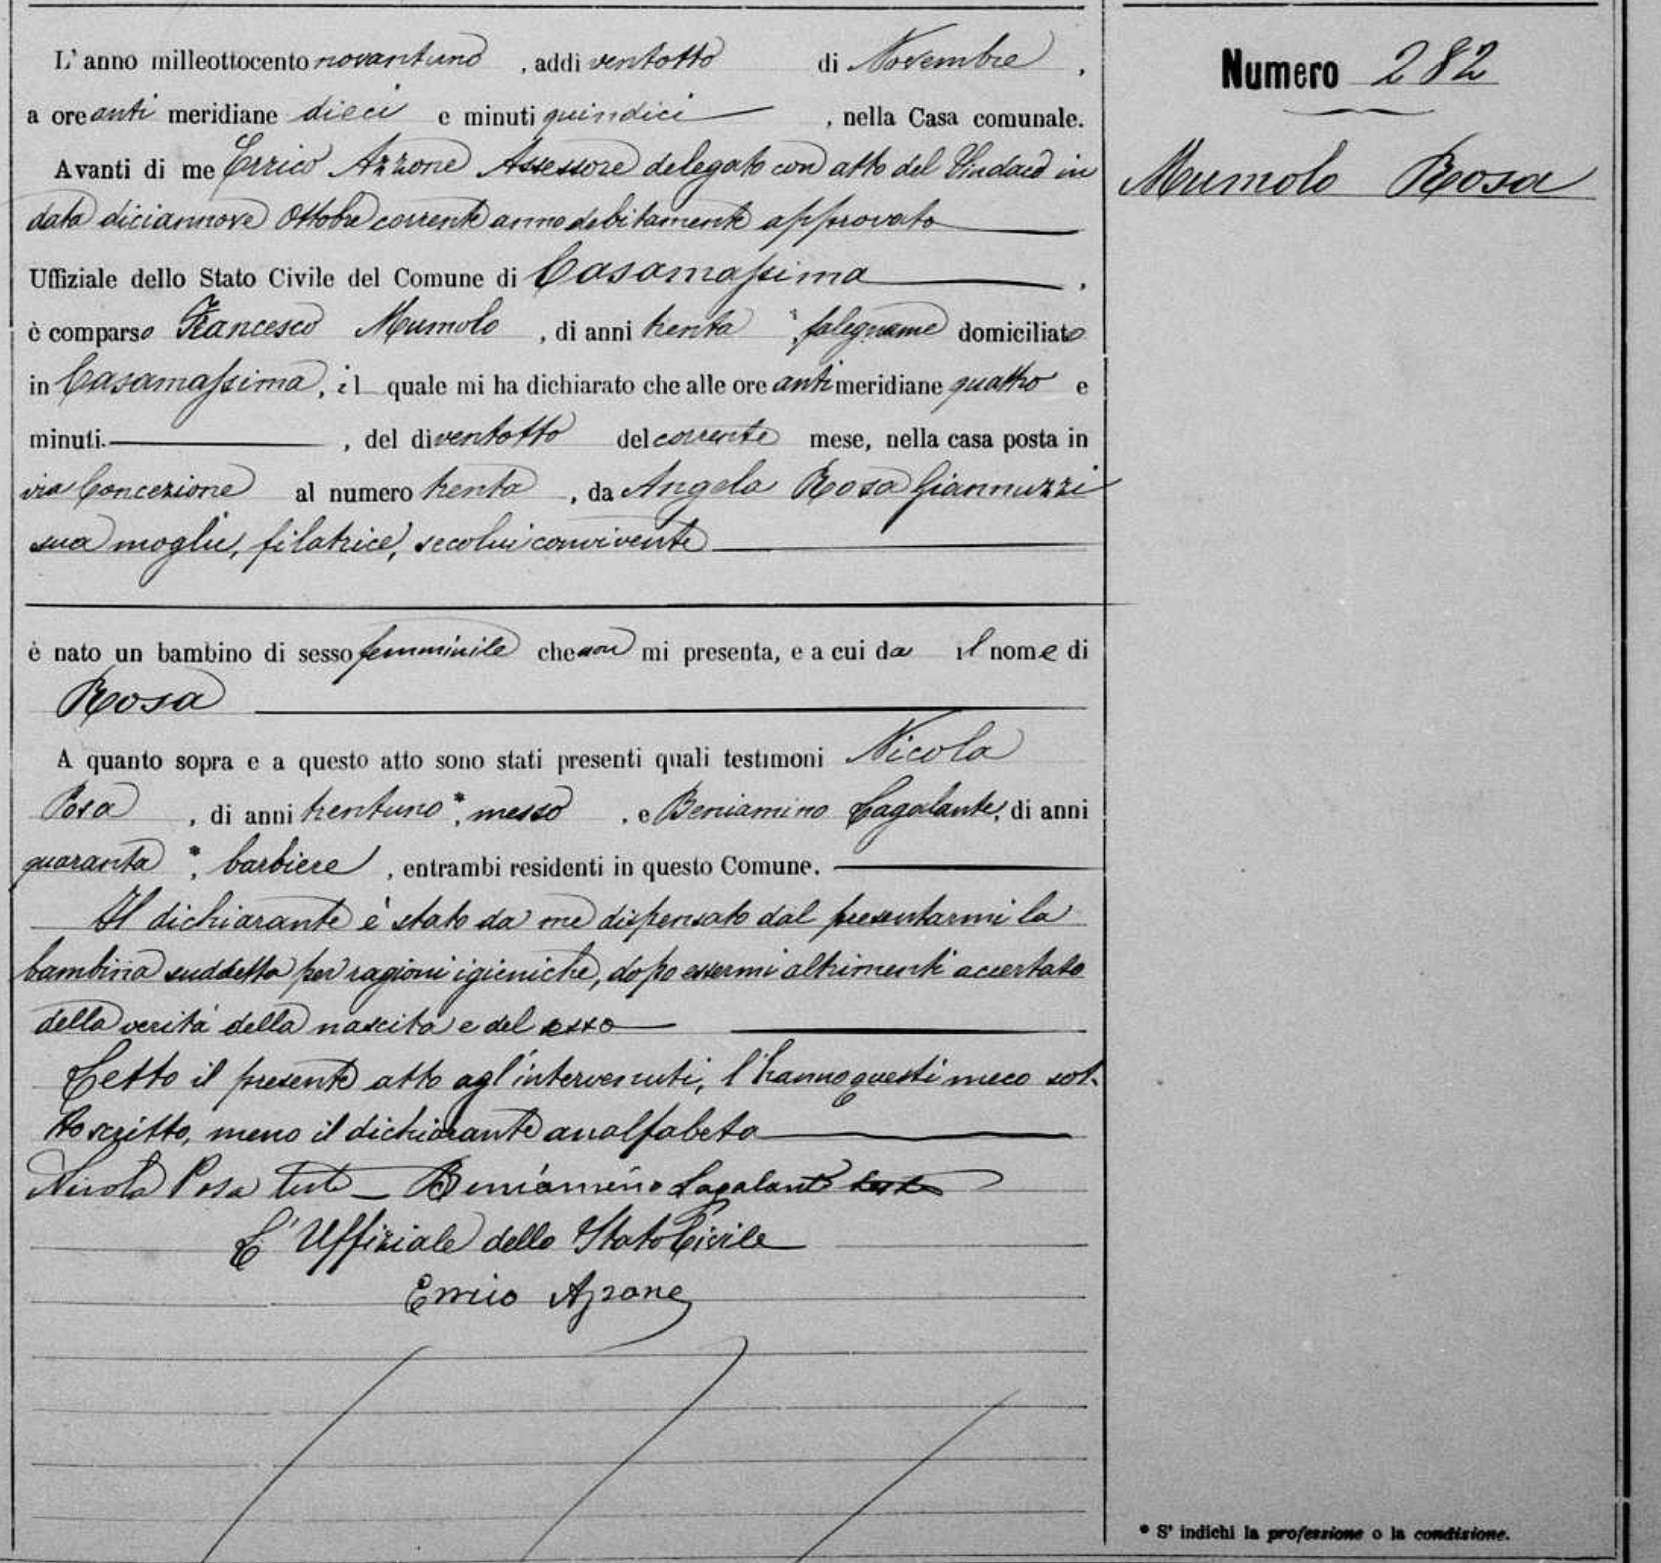 L'anno milleottocento novantuno, addi ventotto di Novembre,
a ore anti meridiane dieci e minuti quindici, nella Casa comunale.
Avanti di me Errico Azzone Assessore delegato con atto del Sindaco in
data diciannove Ottobre corrente anno debitamente approvato
Uffiziale dello Stato Civile del Comune di Casamassima.
è comparso Francesco Mumolo, di anni trenta, falegname domiciliato
in Casamassima, il quale mi ha dichiarato che alle ore anti meridiane quattro e
minuti. , del di ventotto del corrente mese, nella casa posta in
via Concezione al numero trenta, da Angela Rosa Giannuzzi
sua moglie, filatrice, secolui convivente
è nato un bambino di sesso femminile che non mi presenta, e a cui da il nome di
Rosa
A quanto sopra e a questo atto sono stati presenti quali testimoni Nicola
Posa, di anni trentuno*, messo, e Beniamino Lagalante, di anni
quaranta*, barbiere, entrambi residenti in questo Comune.
Il dichiarante è stato da me dispensato dal presentarmi la
bambina suddetta per ragioni igieniche, dopo essermi altrimenti accertato
della verità della nascita e del sesso
Letto il presente atto agl'intervenuti, l'hanno questi meco sot-
toscritto, meno il dichiarante analfabeta
Nicola Posa test - Beniamino Lagalante
L'Uffiziale dello Stato Civile
Errico Azzone
Numero 282
Mumolo Rosa
* S' indichi la professione o la condizione.